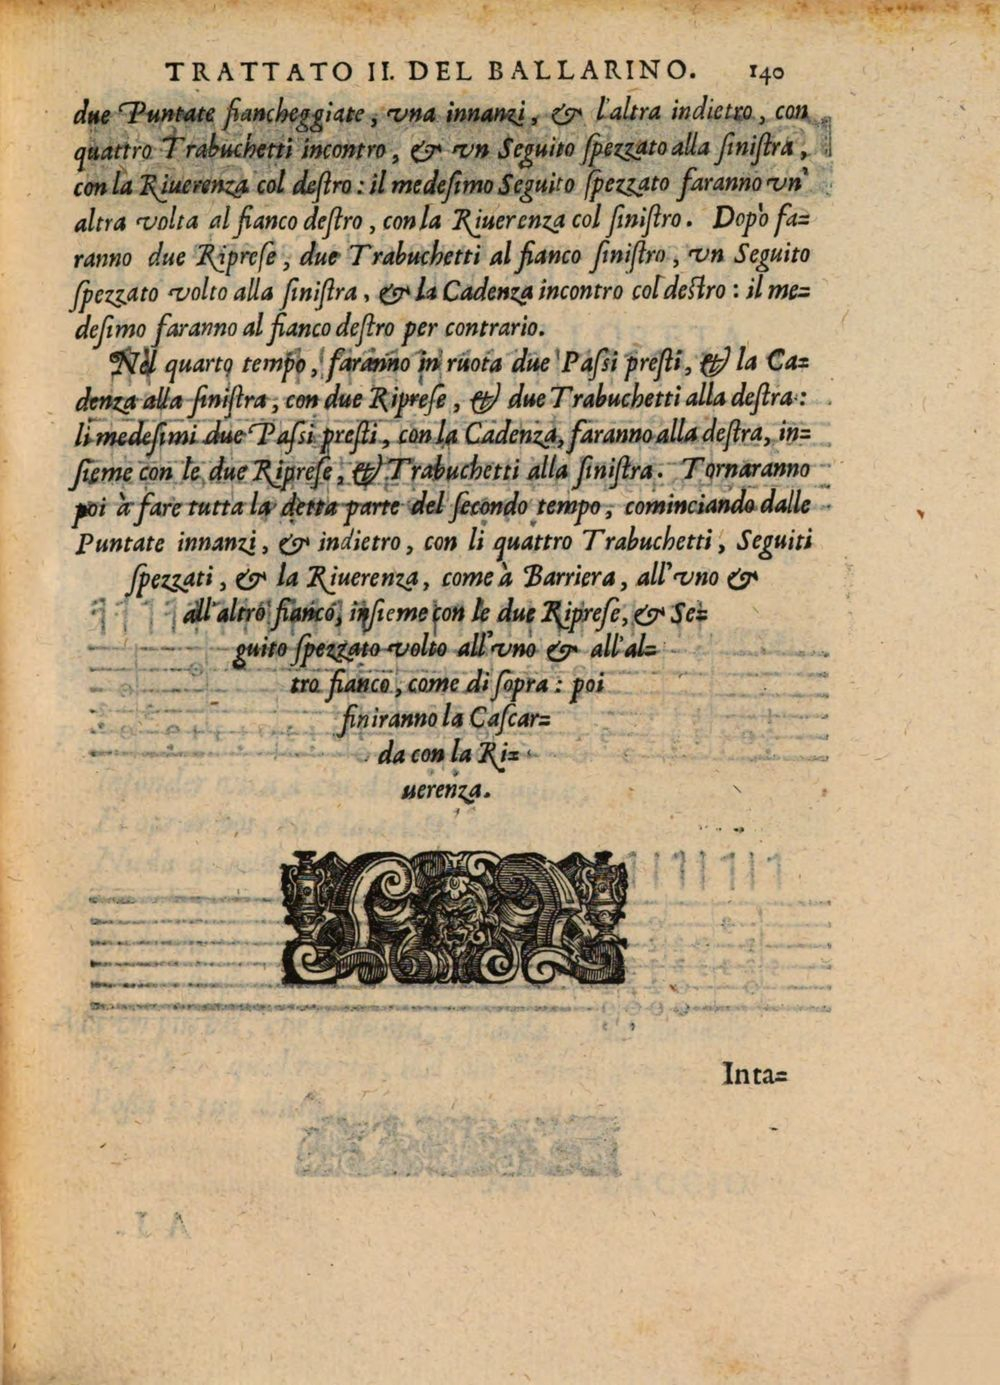 TRATTATO II. DEL BALLARINO. 140
due Puntate fiancheggiate, vna innanzi, & l'altra indietro, con
quattro Trabuchetti incontro, & vn Seguito ſpezzato alla ſiniſtra,
con la Riuerenza col deſtro: il medeſimo Seguito ſpezzato faranno vn'
altra volta al fianco deſtro, con la Riuerenza col ſiniſtro. Dopò fa=
ranno due Ripreſe, due Trabuchetti al fianco ſiniſtro, vn Seguito
ſpezzato volto alla ſiniſtra, & la Cadenza incontro col deſtro: il me=
deſimo faranno al fianco deſtro per contrario.
Nel quarto tempo, faranno in ruota due Paſsi preſti, & la Ca=
denza alla ſiniſtra, con due Ripreſe, & due Trabuchetti alla deſtra:
li medeſimi due Paſsi preſti, con la Cadenza, faranno alla deſtra, in=
ſieme con le due Ripreſe, & Trabuchetti alla ſiniſtra. Tornaranno
poi à fare tutta la detta parte del ſecondo tempo, cominciando dalle
Puntate innanzi, & indietro, con li quattro Trabuchetti, Seguiti
ſpezzati, & la Riuerenza, come à Barriera, all'vno &
all'altro fianco, inſieme con le due Ripreſe, & Se=
guito ſpezzato volto all'vno & all'al=
tro fianco, come di ſopra: poi
finiranno la Caſcar=
da con la Ri=
uerenza.
Inta=